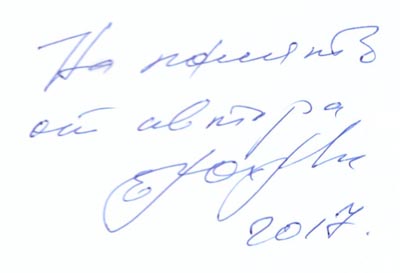 На память
от автора
2017.